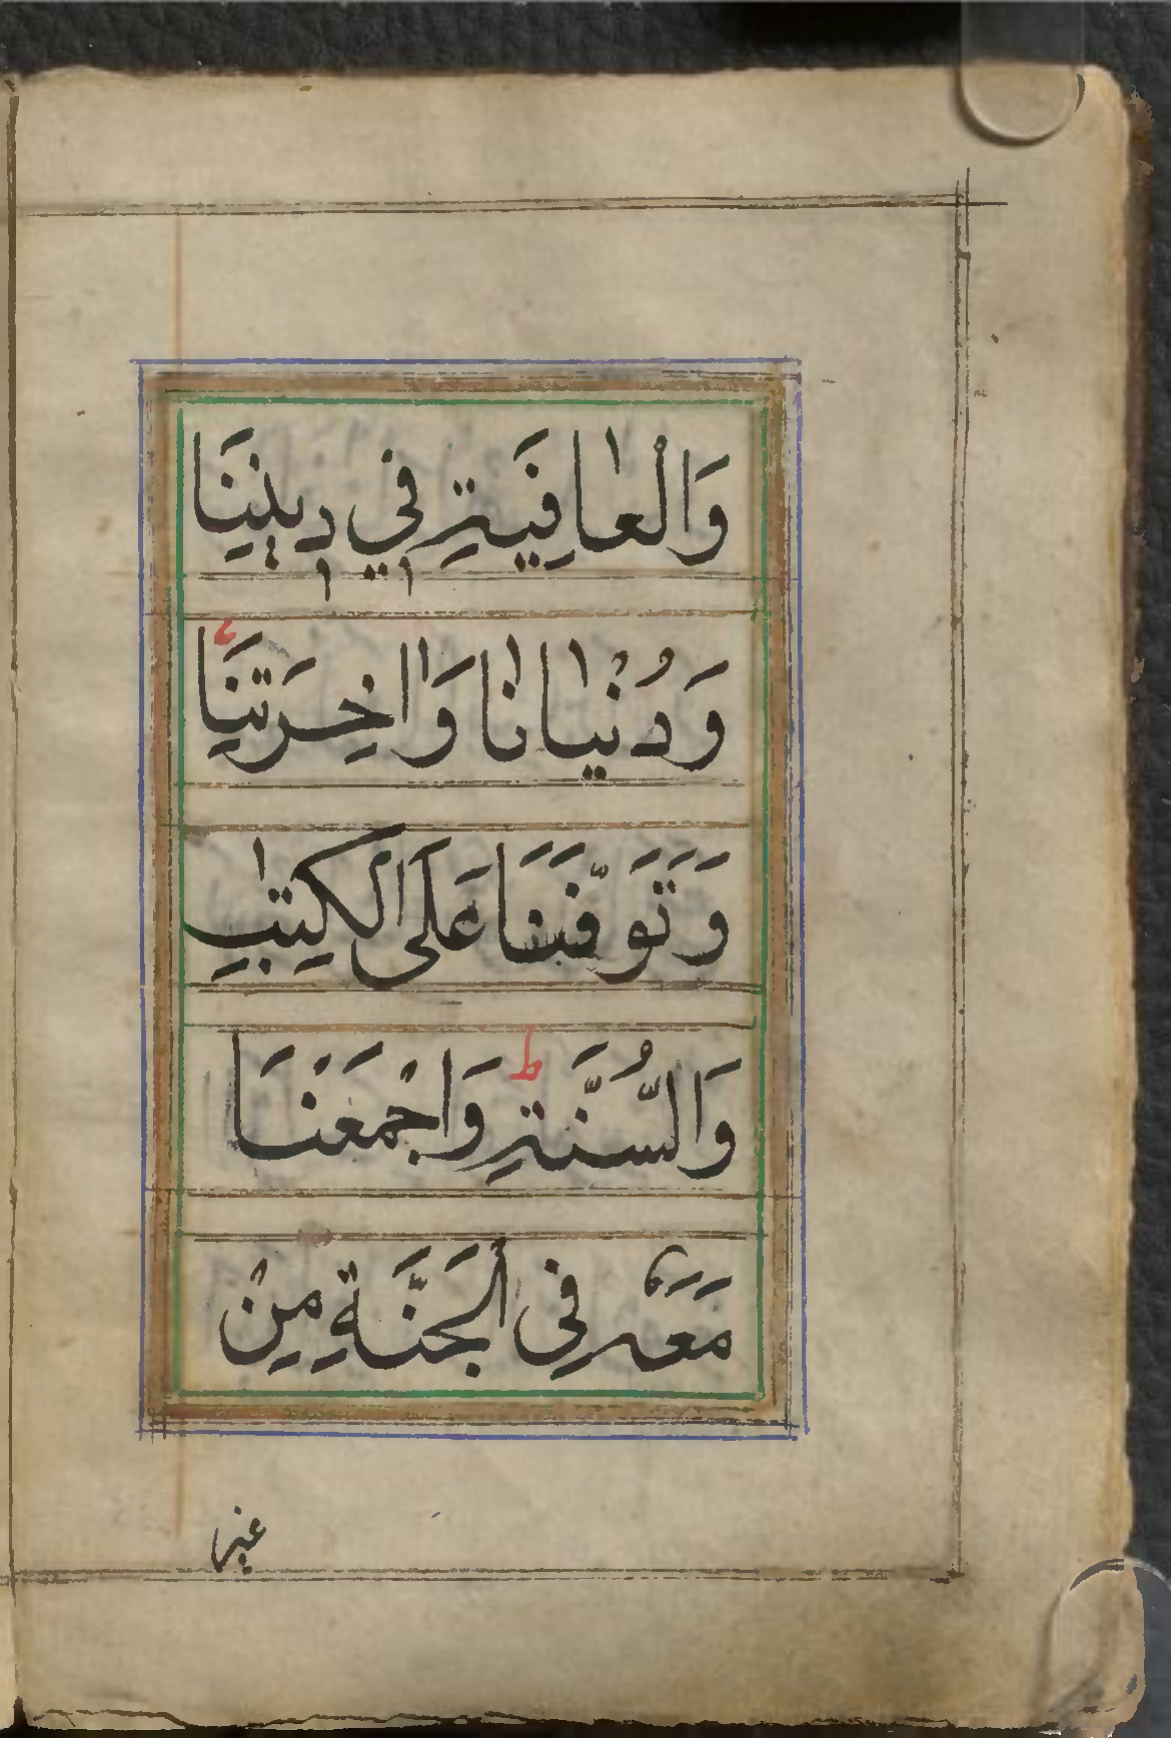 وَالْعٰافِيَةِ فِي دِينِنَا
وَدُنْيٰانٰا وَاٰخِرَتِنَا ء
وَتَوَفَّنَا عَلَى الْكِتٰبِ
وَالسُّنَّةِ ط وَاجْمَعْنَا
مَعَهٗ فِى الْجَنَّةِ مِنْ
غير